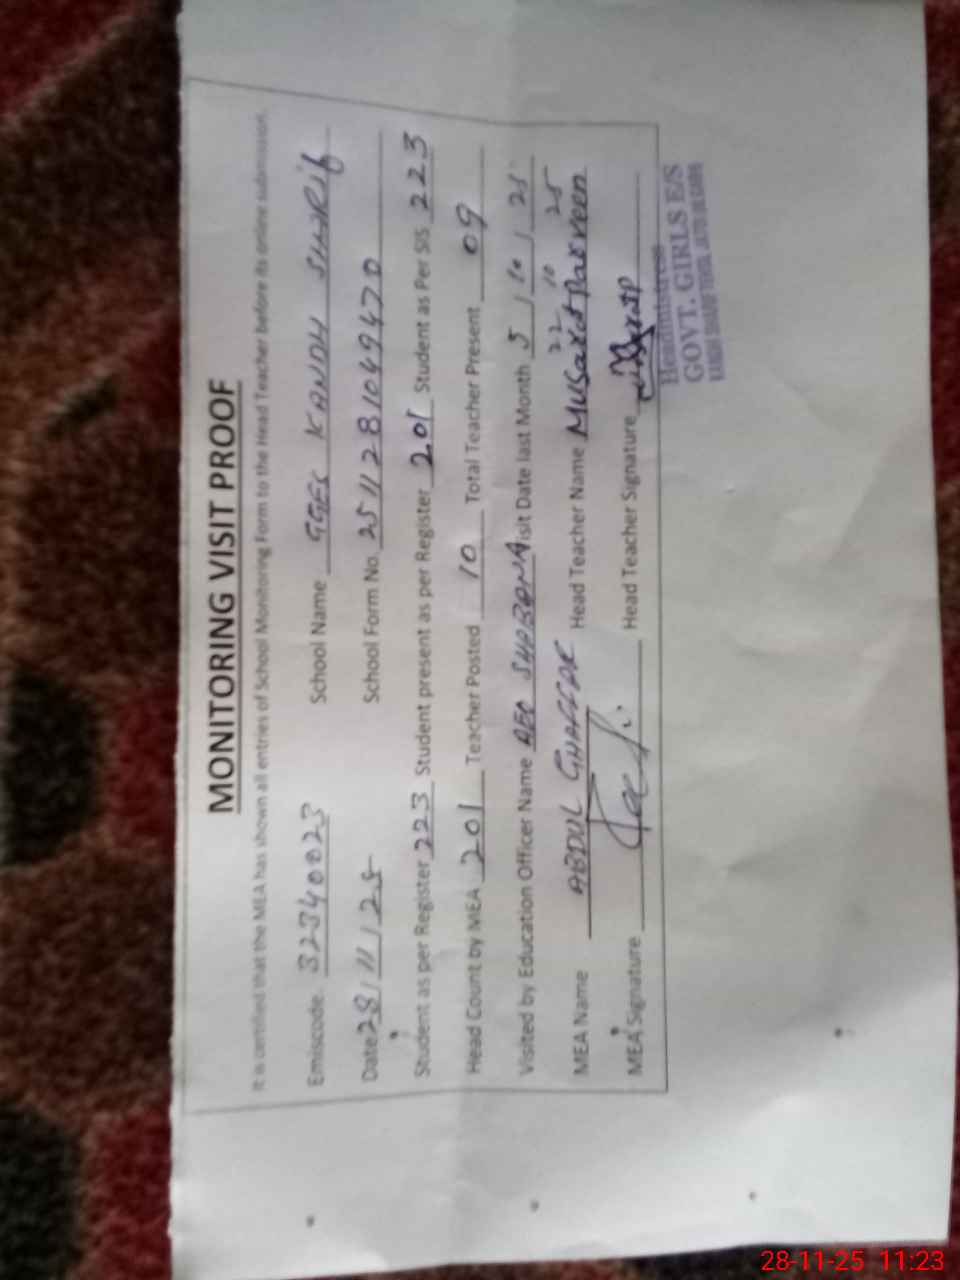 MONITORING VISIT PROOF
It is certified that the MEA has shown all entries of School Monitoring Form to the Head Teacher before its online submission.
Emiscode. 32340023 School Name GGES KANDH SHARIF
Date 28/11/25 School Form No. 2511281049470
Student as per Register 223 Student present as per Register 201 Student as Per SIS 223
Head Count by MEA 201 Teacher Posted 10 Total Teacher Present 09
Visited by Education Officer Name AEO SHABANA Visit Date last Month 5/10/25
22 10 25
MEA Name ABDUL GHAFFAR Head Teacher Name Musarat Parveen
MEA Signature Head Teacher Signature
Headmistress
GOVT. GIRLS E/S
28-11-25 11:23